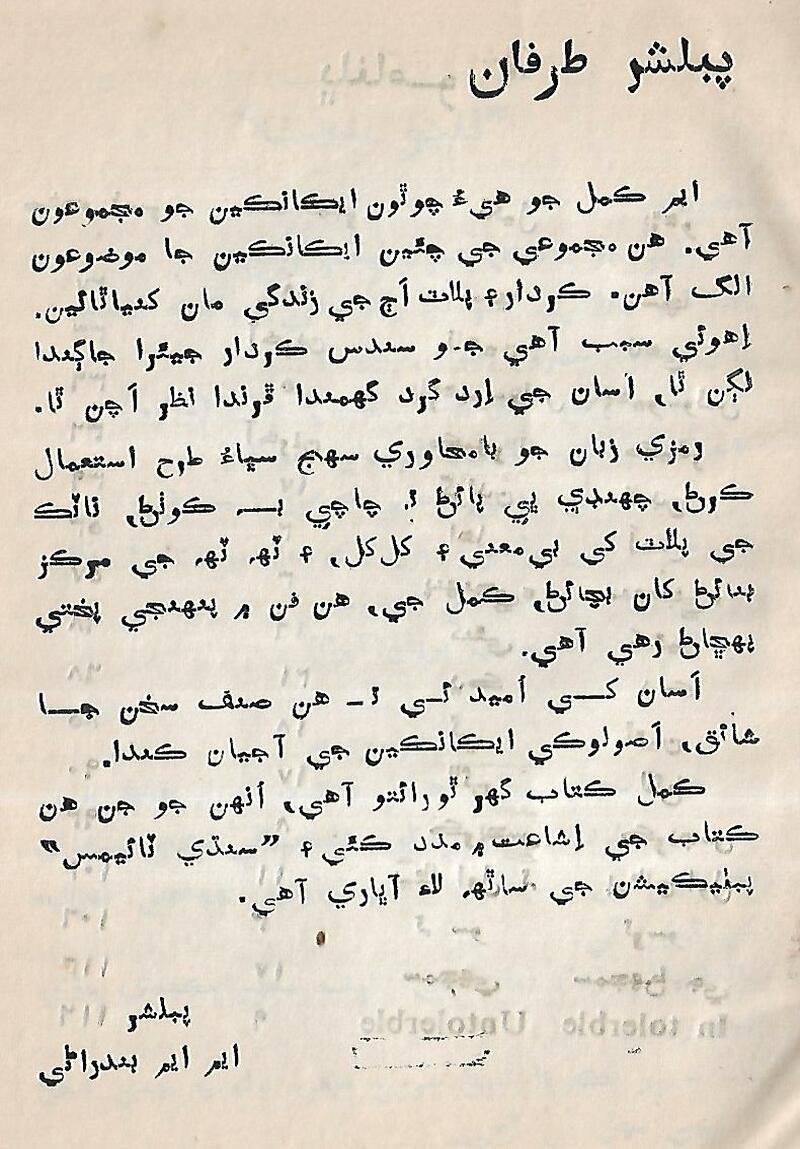 پبلشر طرفان
ايم ڪمل جو هيءُ چوٿون ايڪانڪين جو مجموعون
آهي. هن مجموعي جي چئين ايڪانڪين جا موضوعون
الڳ آهن. ڪردار ۽ پلاٽ اَڄ جي زندگي مان کنياٿائين.
اِهوئي سبب آهي جو سندس ڪردار جيئرا جاڳندا
لڳن ٿا، اَسان جي اِرد گرد گهمندا ڦرندا نظر اَچن ٿا.
رمزي زبان جو بامحاوري سهج سڀاءُ طرح استعمال
ڪرڻ، چهنڊي ڀي پائڻ تہ چاچي بہ ڪوٺڻ، ناٽڪ
جي پلاٽ کي بي معني ۽ کل کل، ۽ ٺهہ ٺهہ جي مرڪز
بنائڻ کان بچائڻ، ڪمل جي، هن فن ۾ پنهنجي پختي
پهچاڻ رهي آهي.
اَسان کي اُميد آهي تہ هن صنف سخن جا
شائق، اَصولوڪي ايڪانڪين جي آجيان ڪندا.
ڪمل ڪتاب گهر ٿورائتو آهي، اُنهن جو جن هن
ڪتاب جي اِشاعت ۾ مدد ڪئي ۽ ”سنڌي ٽائيمس“
پبليڪيشن جي ساٿهہ لاءِ آڀاري آهي.
پبلشر
ايم ايم بندراڻي